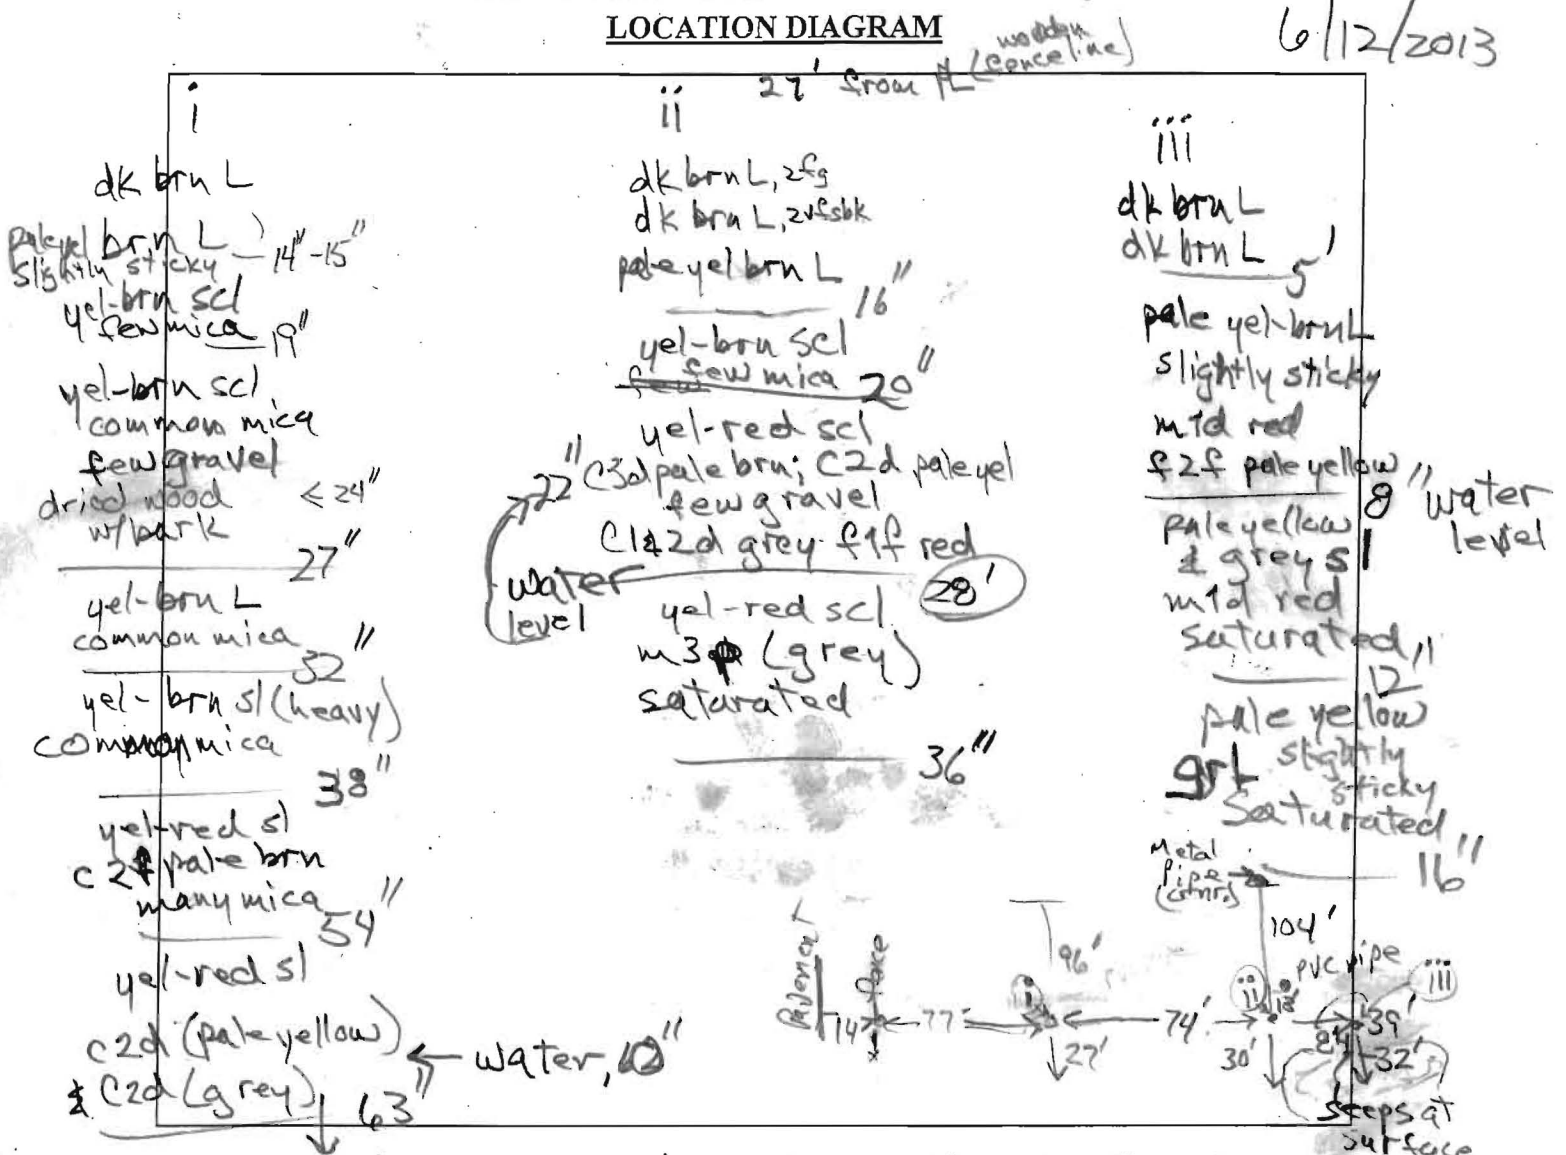 LOCATION DIAGRAM
6/12/2013
27' from PL (wooden
fenceline)
i
dk brn L
pale yel brn L
slightly sticky 14"-15"
yel-brn scl
few mica 19"
yel-brn scl
common mica
few gravel
dried wood ≤24"
w/bark
27"
yel-brn L
common mica
32"
yel-brn sl (heavy)
common mica
38"
yel-red sl
c2f pale brn
many mica
54"
yel-red sl
c2d (pale yellow)
& c2d (grey)
← water,
63"
ii
dk brn L, 2fg
dk brn L, 2vfsbk
pale yel brn L
16"
yel-brn scl
few mica 20"
yel-red scl
22" C3d pale brn; C2d pale yel
few gravel
C1&2d grey f1f red
water
level
28'
yel-red scl
m3p (grey)
saturated
36"
iii
dk brn L
dk brn L
5'
pale yel-brn L
slightly sticky
m1d red
f2f pale yellow
8" water
level
pale yellow
& grey sl
m1d red
saturated
12"
pale yellow
grL slightly
sticky
Saturated
16"
Metal
Pipe
(crnr.)
104'
96'
PVC pipe
Pavement
fence
i
ii
iii
14'
77'
74'
39'
27'
30'
32'
seeps at
surface